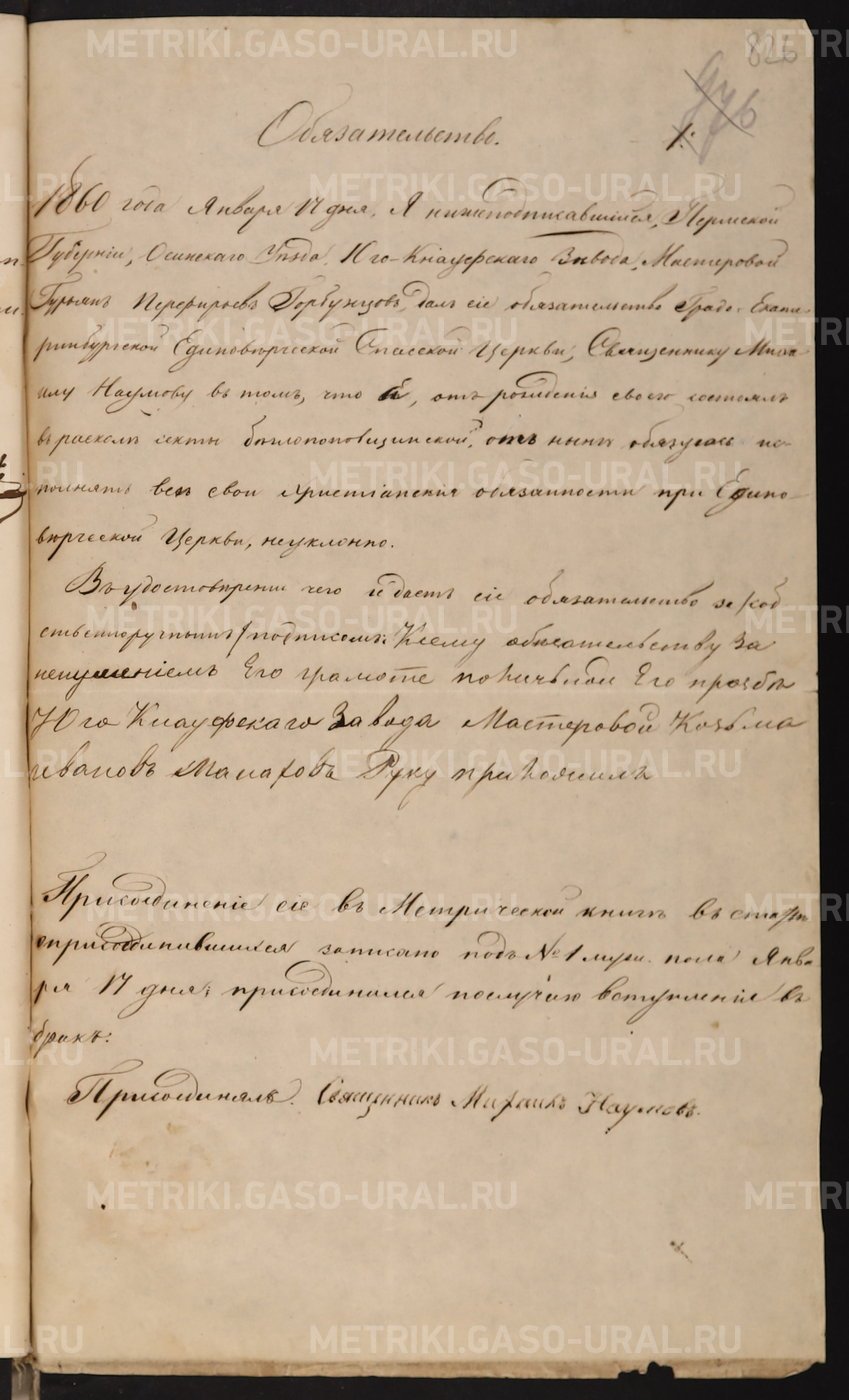 826
976
1.
Обязательство.
1860 года Января 17 дня, Я нижеподписавшійся, Пермской
Губерніи, Осинскаго Уѣзда, Юго-Кнауфскаго Завода, Мастеровой
Гурьянъ Перфирьевъ Горбунцовъ, далъ сіе обязательство Градо-Екате-
ринбургской Единовѣрческой Спасской Церкви, Священнику Миха-
илу Наумову въ томъ, что я, отъ рожденія своего состоялъ
въ расколѣ секты бѣглопоповщинской, отъ нынѣ обязуюсь ис-
полнять всѣ свои христіанскія обязанности при Едино-
вѣрческой Церкви, неуклонно.
Въ удостовѣреніи чего и даетъ сіе обязательство за
подписомъ: Ксему обязательству за
неумѣніемъ Его грамоте поличьной Его прозбѣ
Юго Кнауфскаго Завода Мастеровой Козьма
Ивановъ Макаровъ Руку приложилъ
Присоединеніе сіе въ Метрической книгѣ въ статьѣ
присоединившихся записано подъ № 1 муж. пола Янва-
ря 17 дня; присоединился по случаю вступленія въ
бракъ:
Присоединялъ. Священникъ Михаилъ Наумовъ.
METRIKI.GASO-URAL.RU